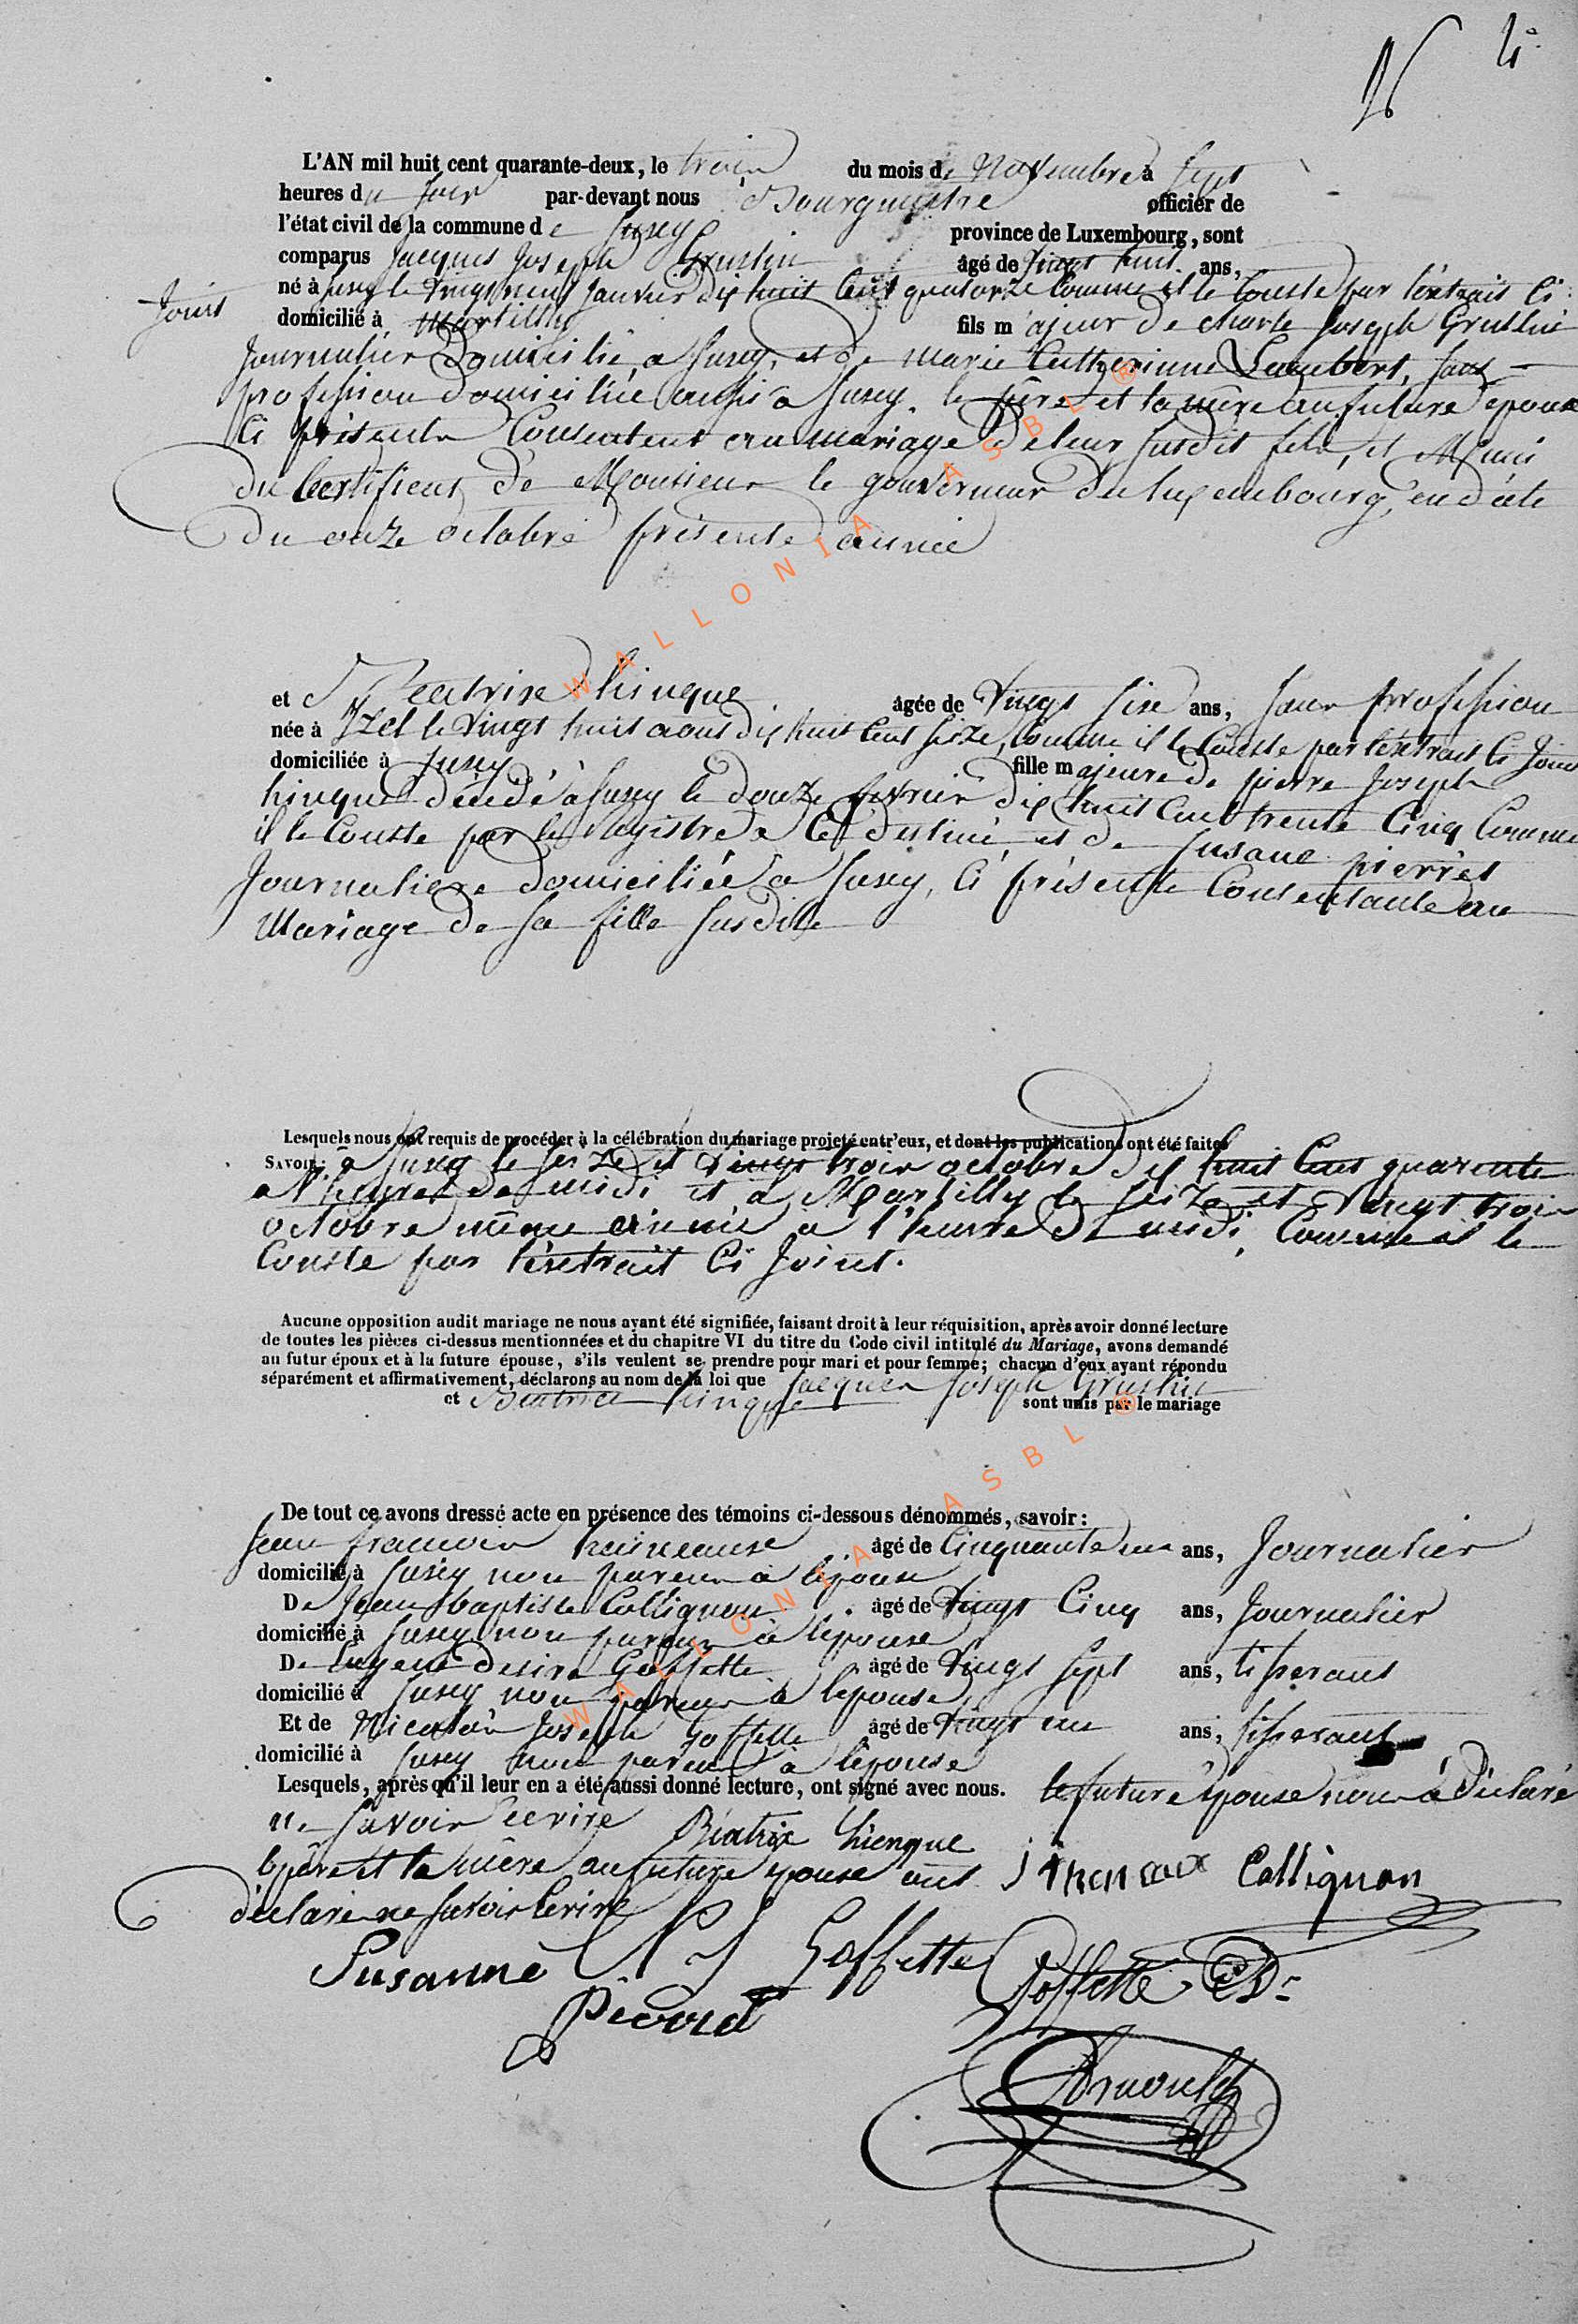 4e
L'AN mil huit cent quarante-deux, le trois du mois de Novembre à sept
heures du soir par-devant nous Bourgmestre officier de
l'état civil de la commune de Jusey province de Luxembourg, sont
comparus Jacques Joseph Gruslin âgé de vingt huit ans,
né à Jusey le vingt neuf Janvier dix huit cent quatorze comme il le conste par l'extrait ci
joint domicilié à Martilly fils majeur de charle Joseph Gruslin
Journalier Domicilié a Jusey, et de marie Catherinne Lambert, sans
profession domiciliée aussi a Jusey. le père et la mère du future epoux
Ci présents Consentent au mariage de leur susdit fils, et Muni
du Certificat de Monsieur le gouverneur du luxembourg, en date
du onze octobre présente année
et Beatrixe hinque âgée de vingt sixe ans, sans profession
née à Izel le vingt huit aout dix huit cent seize, comme il le Conste par l'extrait Ci Joint
domiciliée à Jusey fille majeure de pierre Joseph
hinque décédé à Jusey le douze fevrier dix huit cent trente Cinq Comme
il le Conste par le Registre a ce destiné, et de Susane pierret
Journaliere domiciliée a Jusey, Ci présente Consentante au
Mariage de sa fille susdite
Lesquels nous ont requis de procéder à la célébration du mariage projeté entr'eux, et dont les publications ont été faites
SAVOIR: a Jusey le seize et vingt trois octobre dix huit Cent quarante
a l'heure de midi et à Martilly le seize et vingt trois
octobre même année a l'heure de midi, Comme il le
Conste par l'extrait Ci Joint.
Aucune opposition audit mariage ne nous ayant été signifiée, faisant droit à leur réquisition, après avoir donné lecture
de toutes les pièces ci-dessus mentionnées et du chapitre VI du titre du Code civil intitulé du Mariage, avons demandé
au futur époux et à la future épouse, s'ils veulent se prendre pour mari et pour femme; chacun d'eux ayant répondu
séparément et affirmativement, déclarons au nom de la loi que Jacques Joseph Gruslin
et Béatrice hinque sont unis par le mariage
De tout ce avons dressé acte en présence des témoins ci-dessous dénommés, savoir:
Jean francois âgé de Cinquante un ans, Journalier
domicilié à Jusey non parent a l'epouse
De Jean baptiste Collignon âgé de vingt Cinq ans, Journalier
domicilié à Jusey non parent à l'epouse
De Eugene desire Goffette âgé de vingt sept ans, tisserant
domicilié à Jusey non parent à l'epouse
Et de Nicolas Joseph Goffette âgé de vingt un ans, tisserant
domicilié à Jusey non parent à l'epouse
Lesquels, après qu'il leur en a été aussi donné lecture, ont signé avec nous. le future epouse nous a déclaré
ne savoir ecrire Béatrix hienque
le père et la mère au future epouse ont Collignon
déclaré ne savoir Ecrire
Susanne N J Goffette Goffette E Dr
Pierret
Arnould
WALLONIA ASBL ®
WALLONIA ASBL ®